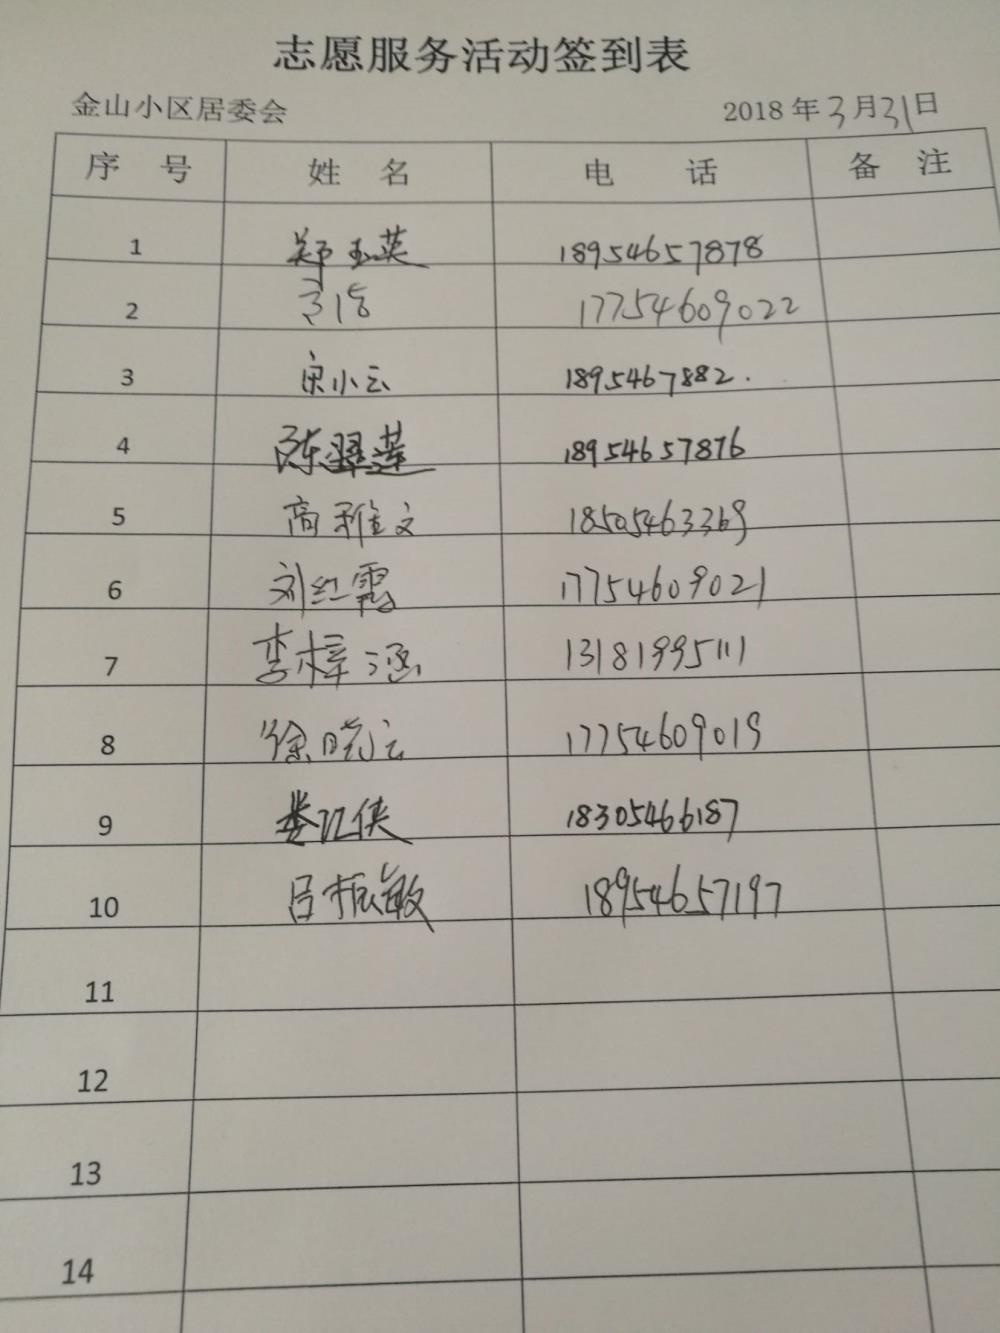 志愿服务活动签到表
金山小区居委会 2018年3月31日
序 号 姓 名 电 话 备 注
1 郑玉英 18954657878
2 17754609022
3 宋小云 1895467882.
4 陈翠莲 18954657876
5 高雅文 18505463369
6 刘红霞 17754609021
7 李梓涵 13181995111
8 徐晓云 17754609019
9 娄江侠 18305466187
10 吕振敏 18954657197
11
12
13
14